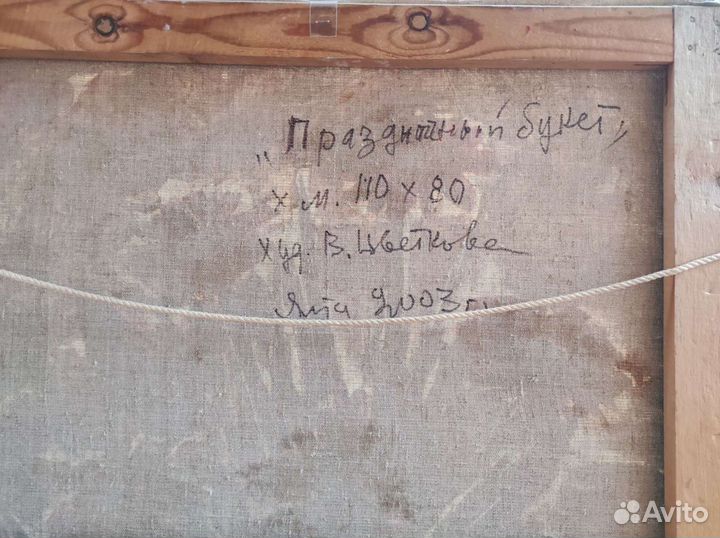 „Праздничный букет„
х.м. 110 х 80
худ. В. Цветкова
Ялта 2003 г.
Avito